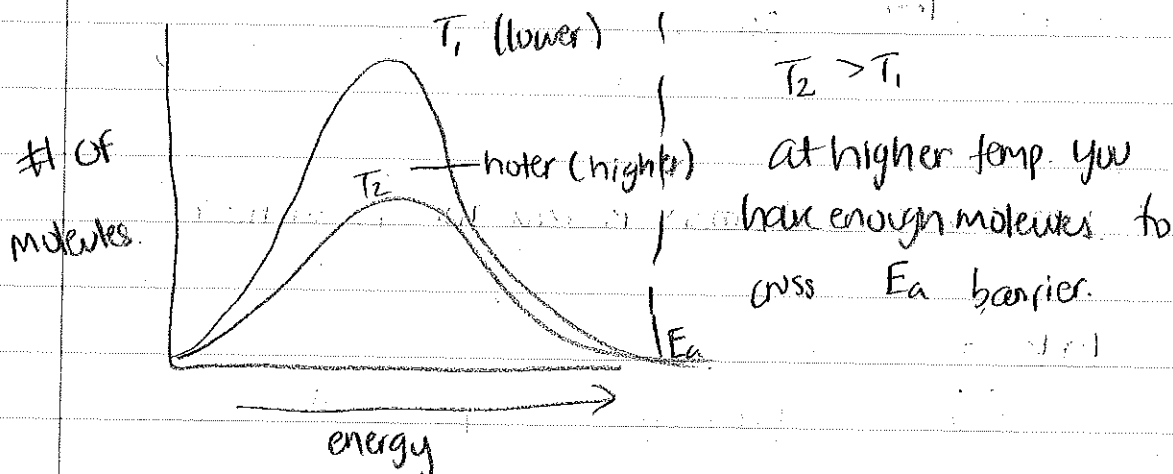 T₁ (lower)
T₂ > T₁
# of
molecules.
T₂
hoter (higher)
at higher temp. you
have enough molecules to
cross Ea barrier.
Ea
energy